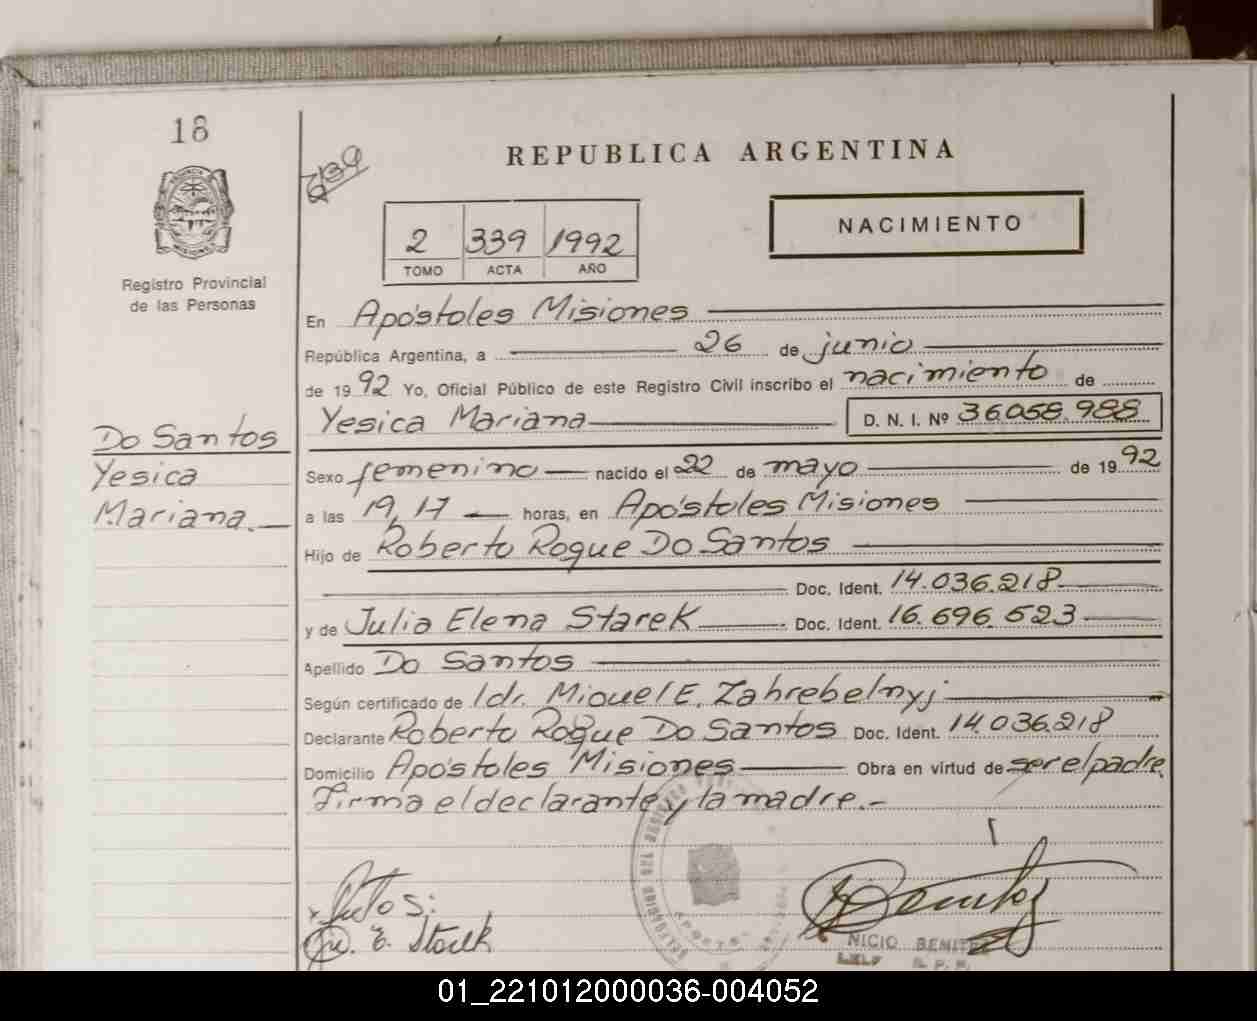 18
339
REPUBLICA ARGENTINA
NACIMIENTO
2 339 1992
TOMO ACTA AÑO
Registro Provincial
de las Personas
En Apóstoles Misiones
República Argentina, a 26 de junio
de 1992 Yo, Oficial Público de este Registro Civil inscribo el nacimiento de
Yesica Mariana D. N. I. Nº 36.058.988
Do Santos
Yesica
Mariana.
Sexo femenino nacido el 22 de mayo de 1992
a las 19,17 horas, en Apóstoles Misiones
Hijo de Roberto Roque Do Santos
Doc. Ident. 14.036.218
y de Julia Elena Starek Doc. Ident. 16.696.523
Apellido Do Santos
Según certificado de Idr. Miguel E. Zahrebelnyj
Declarante Roberto Roque Do Santos Doc. Ident. 14.036.218
Domicilio Apóstoles Misiones Obra en virtud de ser el padre.
Firma el declarante y la madre.-
E. Starek
NICIO BENITEZ
01_221012000036-004052